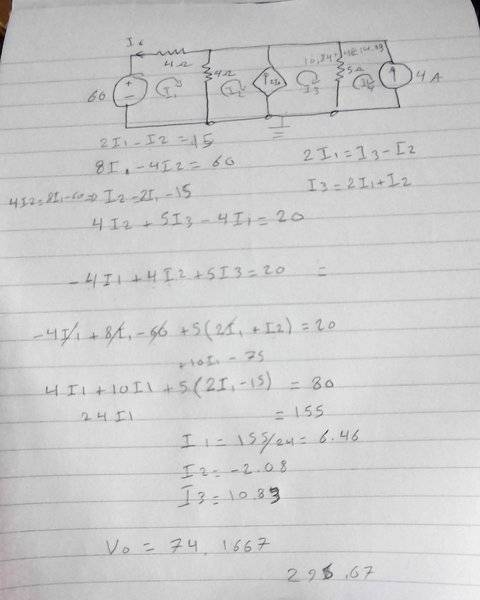 Io
4Ω
10,84+4=14.83
60
+
-
I1
4Ω
I2
I3
5Ω
4 A
2I1 - I2 = 15
8I1 - 4I2 = 60
2I1 = I3 - I2
4I2 = 8I1 - 60 => I2 = 2I1 - 15
I3 = 2I1 + I2
4I2 + 5I3 - 4I1 = 20
-4I1 + 4I2 + 5I3 = 20 =
-4I1 + 8I1 - 60 + 5(2I1 + I2) = 20
+10I1 - 75
4I1 + 10I1 + 5(2I1 - 15) = 80
24I1 = 155
I1 = 155/24 = 6.46
I2 = -2.08
I3 = 10.83
Vo = 74.1667
296.67